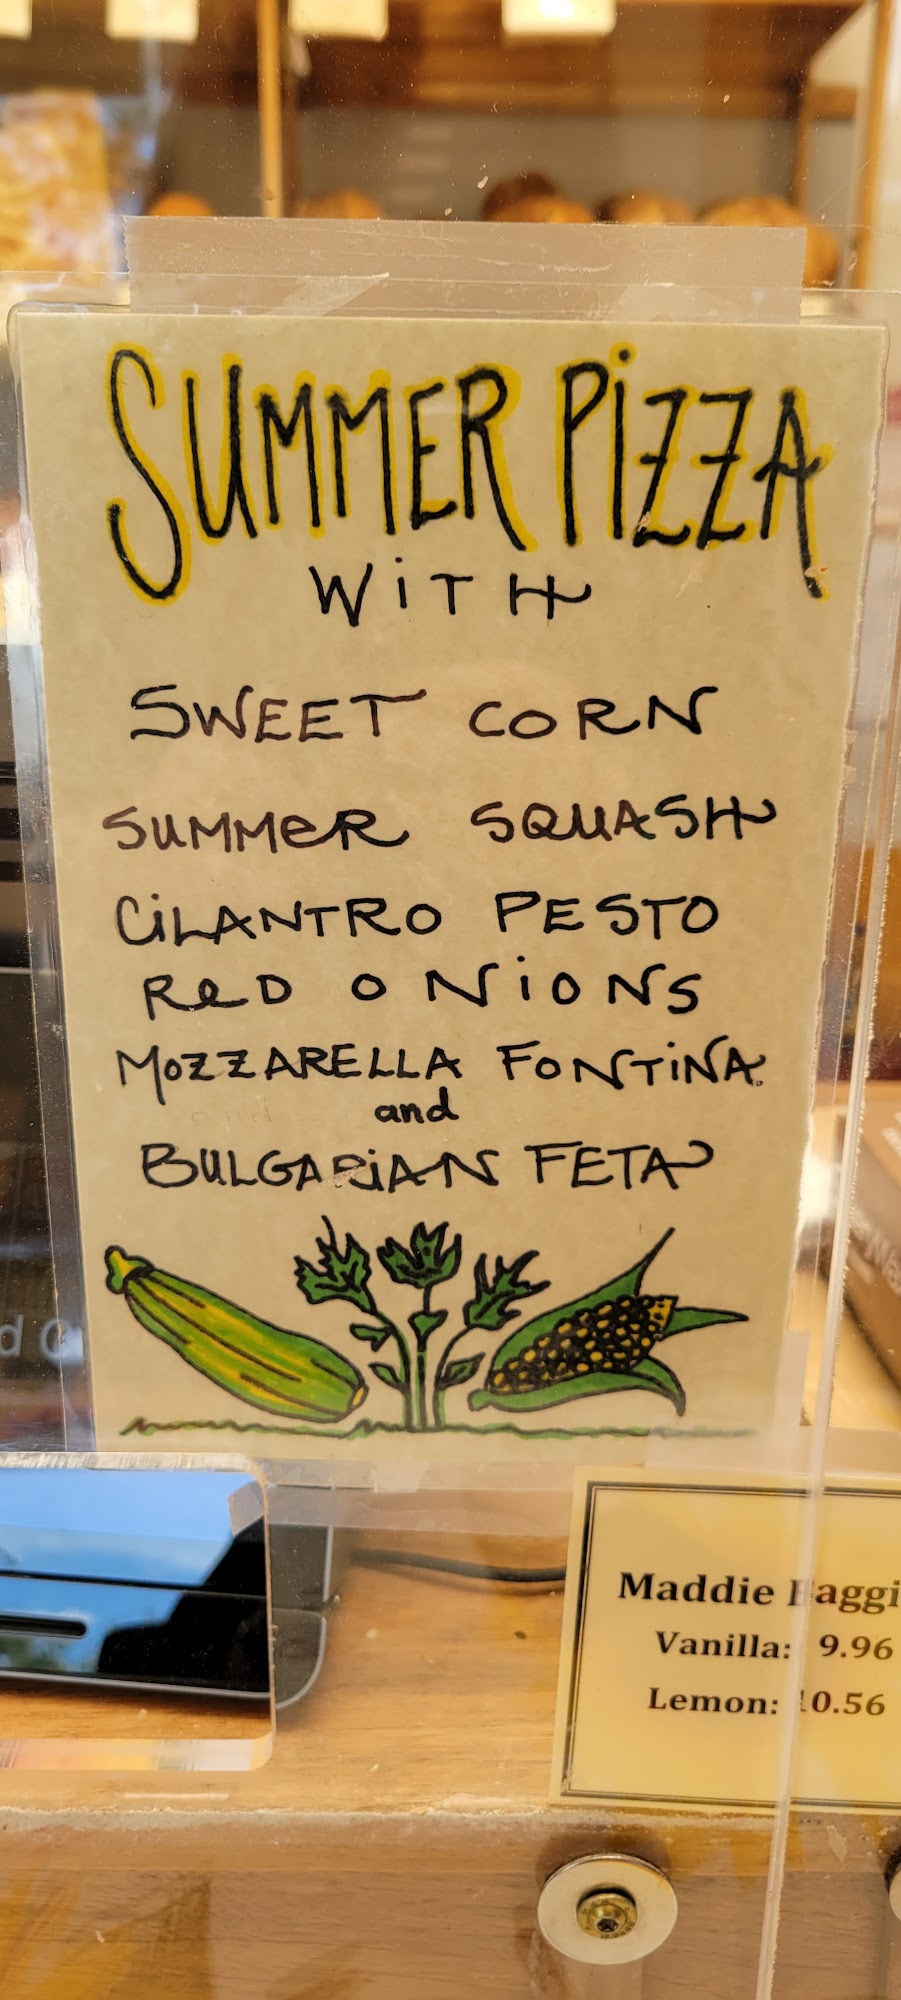 SUMMER PIZZA
WITH
SWEET CORN
SUMMER SQUASH
CILANTRO PESTO
RED ONIONS
MOZZARELLA FONTINA
and
BULGARIAN FETA
Maddie
Vanilla: 9.96
Lemon: 10.56